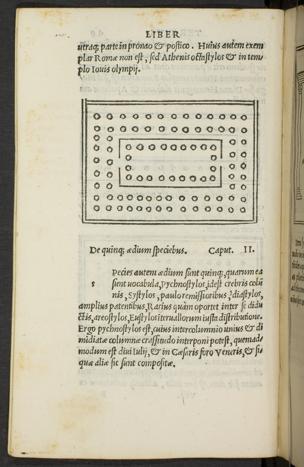 LIBER
utraq; parte in pronao & postico. Huius autem exem
plar Romæ non est, sed Athenis octastylos & in tem
plo Iouis olympij.
De quinq; ædium speciebus. Caput. II.
s pecies autem ædium sunt quinq; quarum ea
sunt uocabula, Pychnostylos, idest crebris colũ
nis, Systylos, paulo remissioribus, diastylos,
amplius patentibus, Rarius quàm oportet inter se didu
ctis, areostylos, Eustylos iteruallorum iusta distributione.
Ergo pychnostylos est, cuius intercolumnio unius & di
midiatæ columnæ crassitudo interponi potest, quemad
modum est diui Iulij, & in Cæsaris foro Veneris, & si
quæ aliæ sic sunt compositæ.